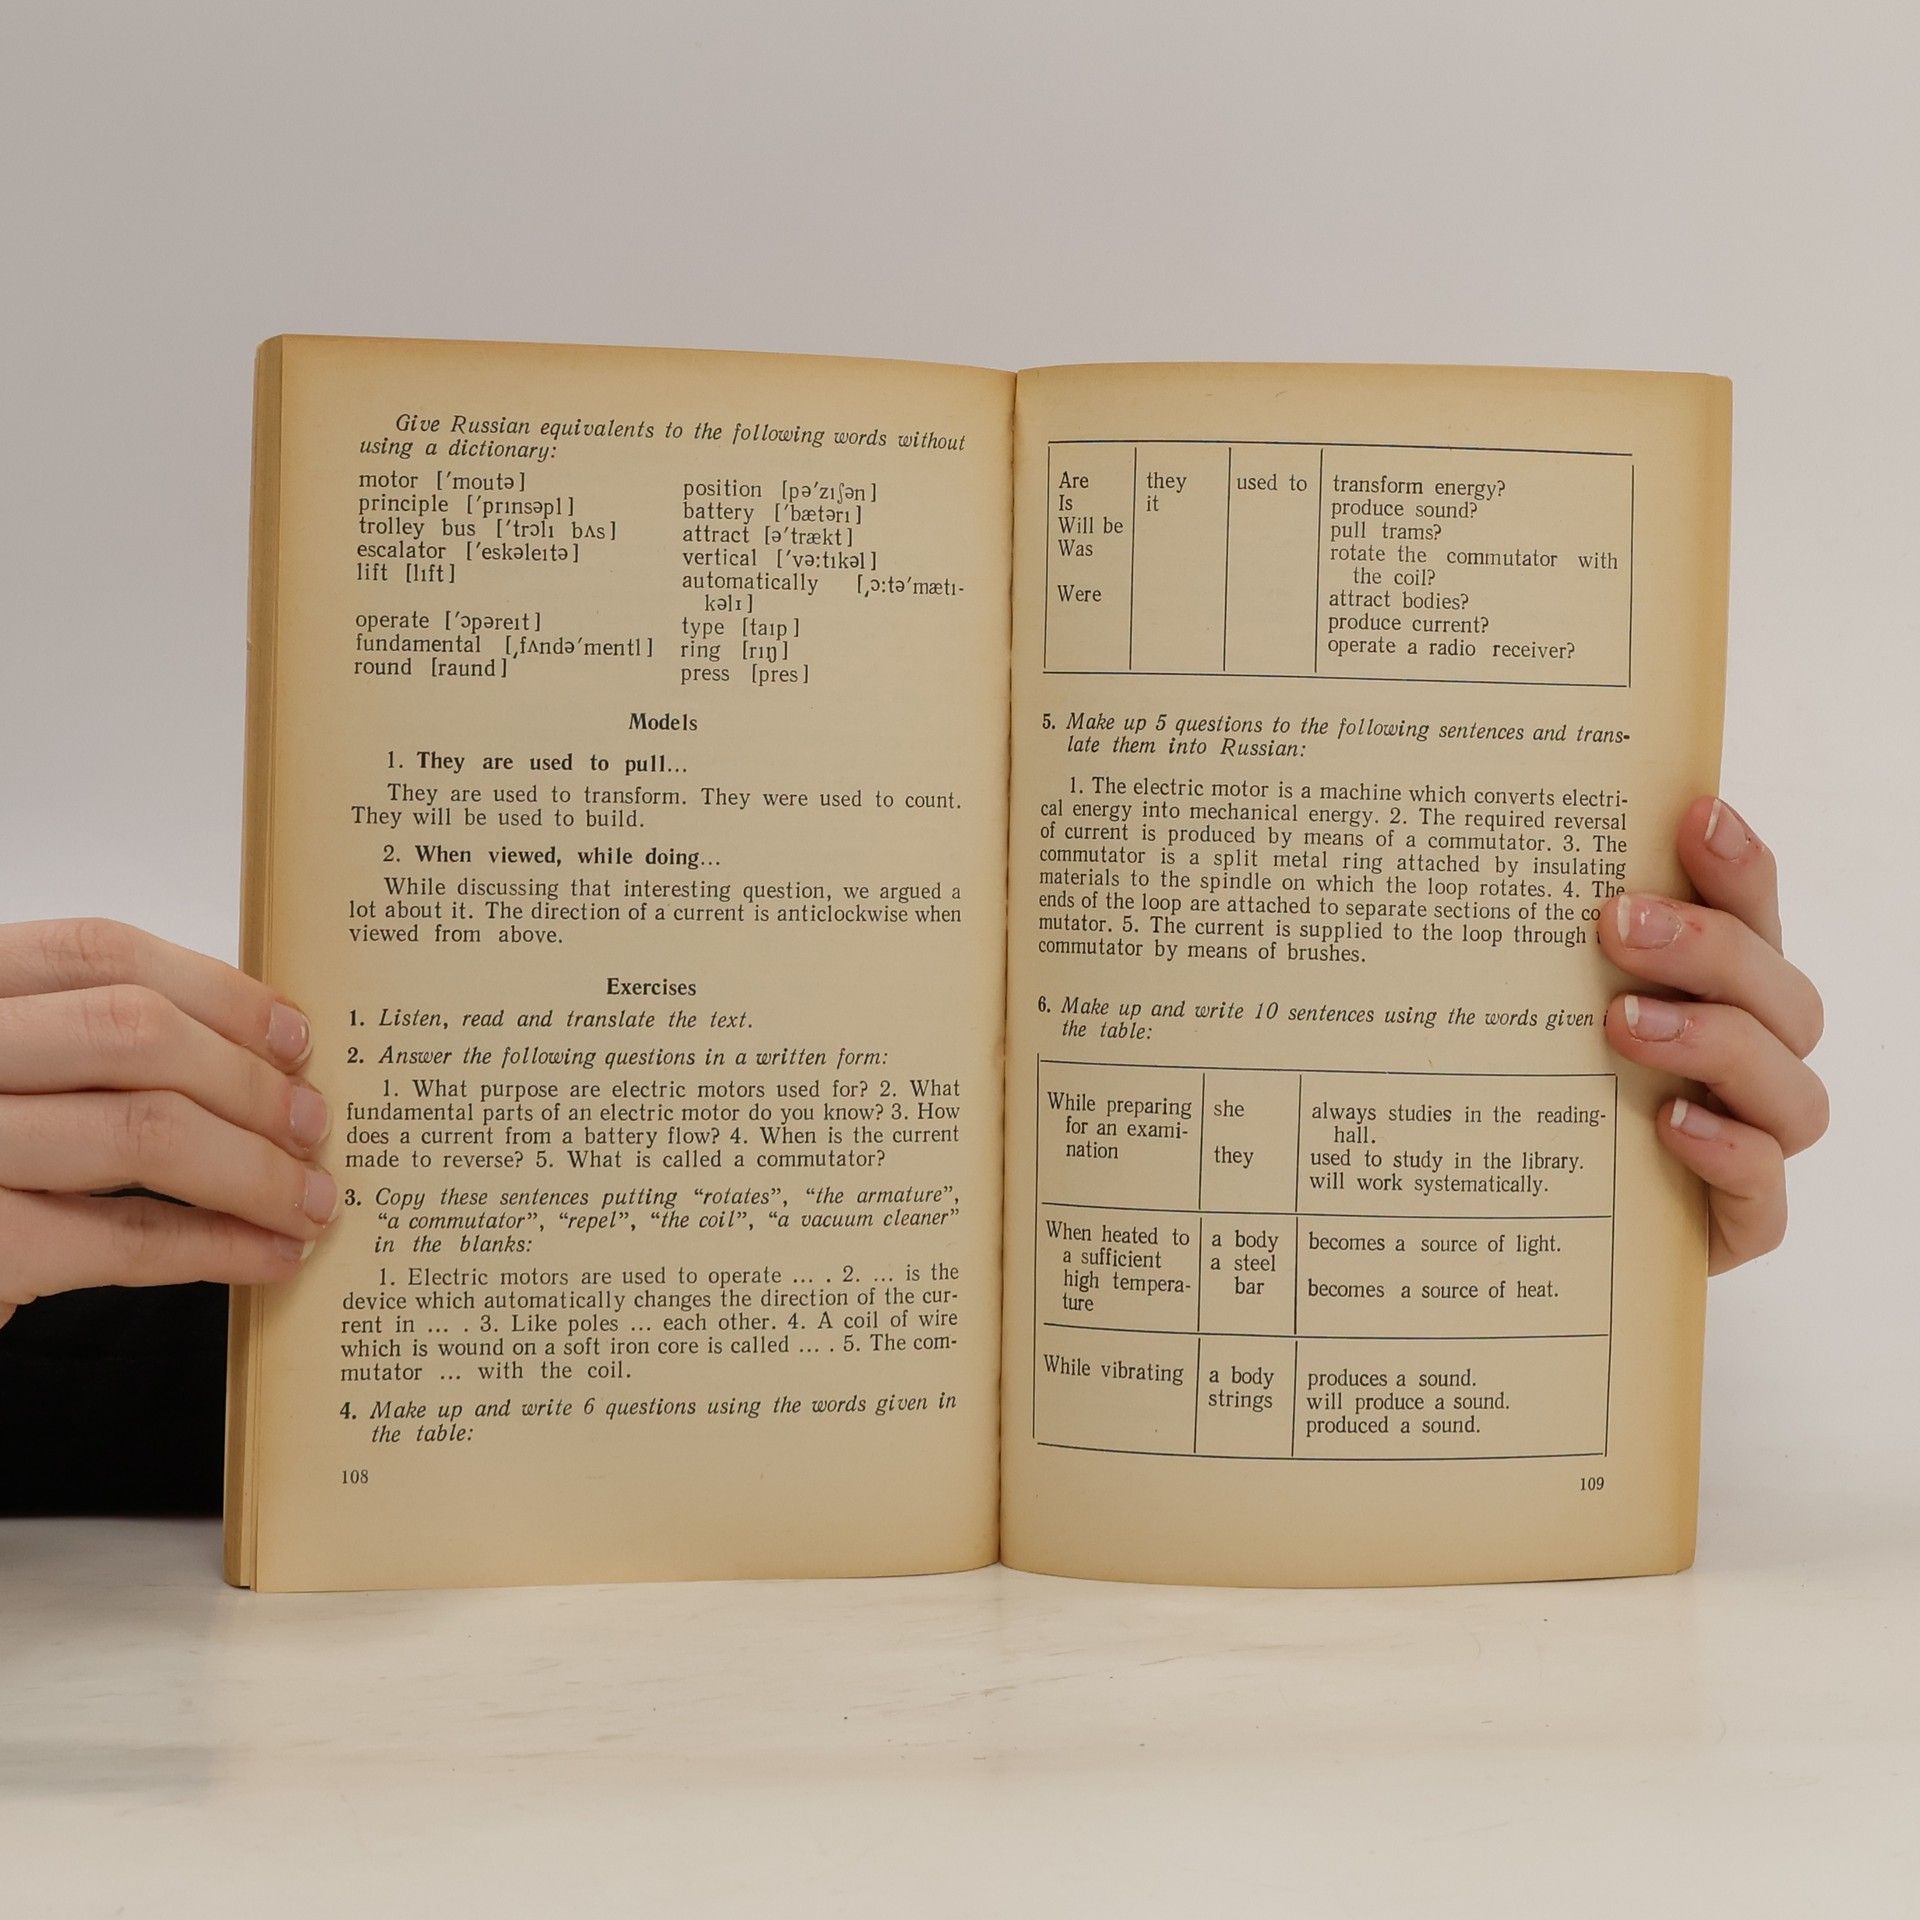 Give Russian equivalents to the following words without
using a dictionary:
motor [ˈmoutə]
principle [ˈprɪnsəpl]
trolley bus [ˈtrɔlɪ bʌs]
escalator [ˈeskəleɪtə]
lift [lɪft]
operate [ˈɔpəreɪt]
fundamental [ˌfʌndəˈmentl]
round [raund]
position [pəˈzɪʃən]
battery [ˈbætərɪ]
attract [əˈtrækt]
vertical [ˈvə:tɪkəl]
automatically [ˌɔ:təˈmætɪ-
kəlɪ]
type [taɪp]
ring [rɪŋ]
press [pres]
Models
1. They are used to pull...
They are used to transform. They were used to count.
They will be used to build.
2. When viewed, while doing...
While discussing that interesting question, we argued a
lot about it. The direction of a current is anticlockwise when
viewed from above.
Exercises
1. Listen, read and translate the text.
2. Answer the following questions in a written form:
1. What purpose are electric motors used for? 2. What
fundamental parts of an electric motor do you know? 3. How
does a current from a battery flow? 4. When is the current
made to reverse? 5. What is called a commutator?
3. Copy these sentences putting “rotates”, “the armature”,
“a commutator”, “repel”, “the coil”, “a vacuum cleaner”
in the blanks:
1. Electric motors are used to operate ... . 2. ... is the
device which automatically changes the direction of the cur-
rent in ... . 3. Like poles ... each other. 4. A coil of wire
which is wound on a soft iron core is called ... . 5. The com-
mutator ... with the coil.
4. Make up and write 6 questions using the words given in
the table:
108
Are they used to transform energy?
Is it produce sound?
Will be pull trams?
Was rotate the commutator with
the coil?
Were attract bodies?
produce current?
operate a radio receiver?
5. Make up 5 questions to the following sentences and trans-
late them into Russian:
1. The electric motor is a machine which converts electri-
cal energy into mechanical energy. 2. The required reversal
of current is produced by means of a commutator. 3. The
commutator is a split metal ring attached by insulating
materials to the spindle on which the loop rotates. 4. The
ends of the loop are attached to separate sections of the co
mutator. 5. The current is supplied to the loop through
commutator by means of brushes.
6. Make up and write 10 sentences using the words given
the table:
While preparing she always studies in the reading-
for an exami- hall.
nation they used to study in the library.
will work systematically.
When heated to a body becomes a source of light.
a sufficient a steel
high tempera- bar becomes a source of heat.
ture
While vibrating a body produces a sound.
strings will produce a sound.
produced a sound.
109